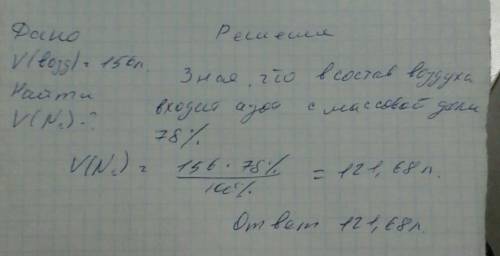 Дано
Решения
V(возд)=156л.
Найти
V(N₂)-?
Зная, что в состав воздуха
входит азот с массовой доли
78%
V(N₂) = 156 · 78% / 100% = 121,68л.
Ответ 121,68л.